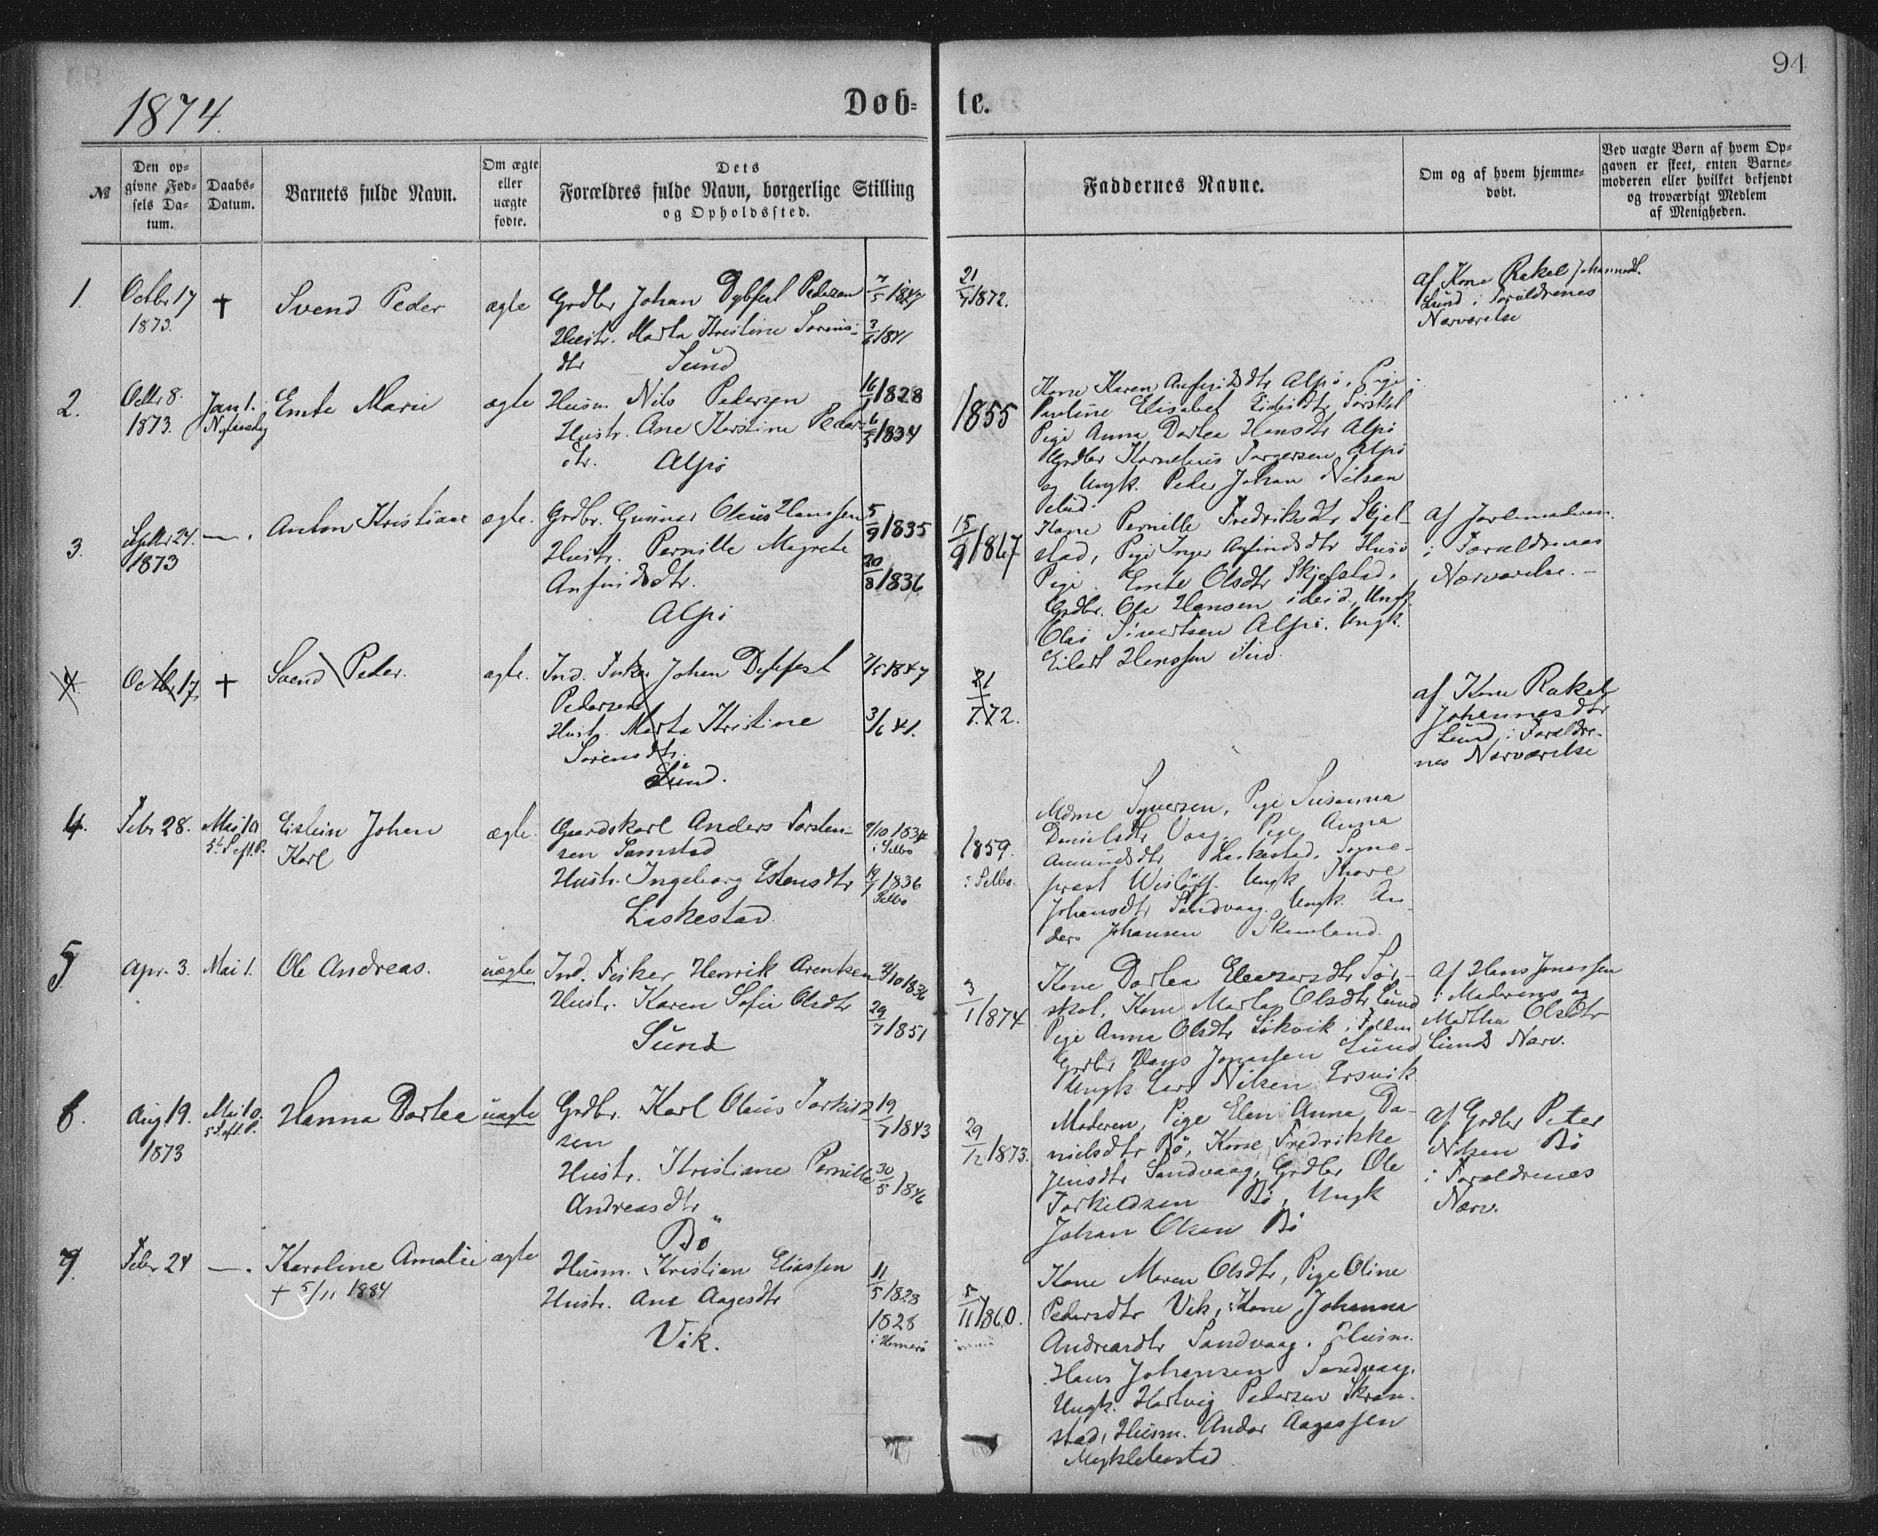 94
1874.
Døb- te.
№
Den opgivne Fødsels Datum.
Daabs-Datum.
Barnets fulde Navn.
Om ægte eller uægte fødte.
Dets
Forældres fulde Navn, borgerlige Stilling
og Opholdssted.
Faddernes Navne.
Om og af hvem hjemmedøbt.
Ved uægte Børn af hvem Opgaven er skeet, enten Barnemoderen eller hvilket bekjendt og troværdigt Medlem af Menigheden.
1. Octbr 17 1873. † Svend Peder ægte
Grdbr Johan Dybfest Pedersen 7/5 1847
Hustr. Marta Kristine Sørens- 3/6 1841
dtr Lund
21/7 1872.
af Kone Rakel Johannesd.
Lund i Forældrenes
Nærværelse
2. Octbr 8. 1873. Jan 1. Nytaarsdag Emte Marie ægte
Husm. Nils Pedersen 16/1 1828
Hustr. Ane Kirstine Peders 6/5 1834
dtr. Alpø
1855
Kone Karen Anfindsdtr Alpø, Pige
Pauline Elisabet Eidisdtr Sørskot
Pige Anna Dortea Hansdtr Alpø
Grdbr Kornelius Torgersen Alpø
og Ungk. Peder Johan Nilsen
3. Septbr 24. 1873 — . Anton Kristian ægte.
Grdbr. Gunnar Olaus Hanssen 5/9 1835
Hustr. Pernille Magrete 20/8 1836
Anfindsdtr.
Alpø
15/9 1867
Kone Pernille Fredriksdtr Skjel-
stad, Pige Inger Anfindsdtr Husø
Pige Emte Olsdtr Skjelstad,
Grdbr. Ole Hansen ideid, Ungk.
Olai Sivertsen Alpø. Ungk.
Eilert Hanssen
af Jordemoderen
i Forældrenes
Nærværelse. —
4 Octbr 17, † Svend Peder. ægte.
Ind. Fisker Johan Dybfest 7/5 1847
Pedersen
Hust. Marta Kristine 3/6 41.
Sørensdtr.
Lund.
21/7. 72.
af Kone Rakel
Johannesdtr
Lund i Forældre-
nes Nærværelse
4. Febr 28. Mai 10 5te S. eft. P. Eistein Johan ægte.
Karl
Gaardskarl Anders Torsten- 9/10 1834
sen Samstad i Selbo
Hustr. Ingeborg Estensdtr 19/7 1836
Selbo
Laskestad
1859.
i Selbo.
Mdme Syversen, Pige Susanna
Danielsdtr Vaag, Pige Anna
Amundsdtr Laskestad, Sogne-
præst Wisløff. Ungk Thore
Johansdtr Sandvaag Ungk. An-
ders Johansen
5 Apr. 3. Mai 1. Ole Andreas. uægte
Ind. Fisker Henrik Arentsen 9/10 1836
Hustr. Karen Sofie Olsdtr 29/7 1851
Lund
3/1 1874
Kone Dortea Eleasersdtr Sør-
skot, Kone Marta Olsdtr Lund
Pige Anna Olsdtr Løkvik i Folden
Grdbr Hans Jonassen Lund
Ungk Lars Nilsen Ersvik
af Hans Jonassen
i Moderens og
Martha Olsdtr
Lunds Nærv.
6. Aug 19. 1873 Mai 10. 5 S. eft. P. Hanna Dortea uægte
Grdbr. Karl Olaus Torkild- 19/7 1843
sen
Hustr. Kristiane Pernille 30/5 1846
Andreasdtr
Bø
29/12 1873.
Moderen, Pige Elen Anna Da-
nielsdtr Bø, Kone Fredrikke
Jensdtr Sandvaag, Grdbr Ole
Torkildsen Bø, Ungk
Johan Olsen Bø
af Grdbr Peter
Nilsen Bø
i Forældrenes
Nærv.
7. Febr 24 — . Karoline Amalie ægte
† 5/11 1884
Husm. Kristian Eliassen 11/5 1828
Hustr. Ane Aagesdtr 1828
i Hamarø
Vik.
5/11 1860.
Kone Maren Olsdtr, Pige Oline
Pedersdtr Vik, Kone Johanna
Andreasdtr Sandvaag. Husm.
Hans Johansen Sandvaag.
Ungk. Hartvig Pedersen Skran-
stad, Husm. Andor Aagessen
Myklebostad